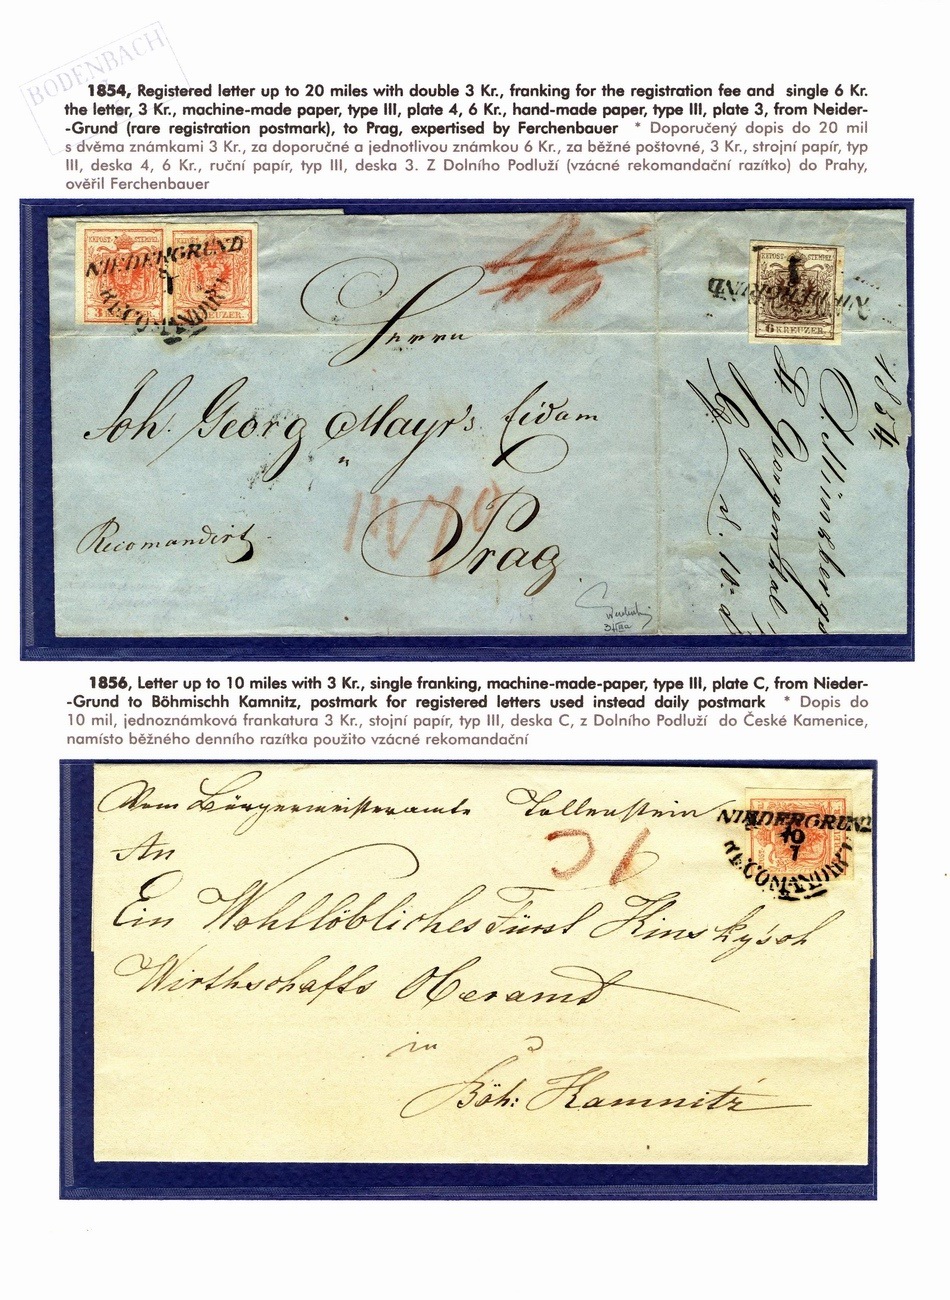 BODENBACH
1854, Registered letter up to 20 miles with double 3 Kr., franking for the registration fee and single 6 Kr.
the letter, 3 Kr., machine-made paper, type III, plate 4, 6 Kr., hand-made paper, type III, plate 3, from Neider-
-Grund (rare registration postmark), to Prag, expertised by Ferchenbauer * Doporučený dopis do 20 mil
s dvěma známkami 3 Kr., za doporučné a jednotlivou známkou 6 Kr., za běžné poštovné, 3 Kr., strojní papír, typ
III, deska 4, 6 Kr., ruční papír, typ III, deska 3. Z Dolního Podluží (vzácné rekomandační razítko) do Prahy,
ověřil Ferchenbauer
NIEDERGRUND
RECOMANDIRT
KREUZER
KKPOST-STEMPEL
6 KREUZER
NIEDERGRUND
Herrn
Joh. Georg Mayr's Eidam
Prag
Recomandirt
1854
St. Georgenthal
1856, Letter up to 10 miles with 3 Kr., single franking, machine-made-paper, type III, plate C, from Nieder-
-Grund to Böhmischh Kamnitz, postmark for registered letters used instead daily postmark * Dopis do
10 mil, jednoznámková frankatura 3 Kr., stojní papír, typ III, deska C, z Dolního Podluží do České Kamenice,
namísto běžného denního razítka použito vzácné rekomandační
Vom Bürgermeisteramte Tollenstein
NIEDERGRUND
10
RECOMANDIRT
An
Ein Wohllöbliches Fürst Kinsky'sch
Wirthschafts Oberamt
in
Böh: Kamnitz